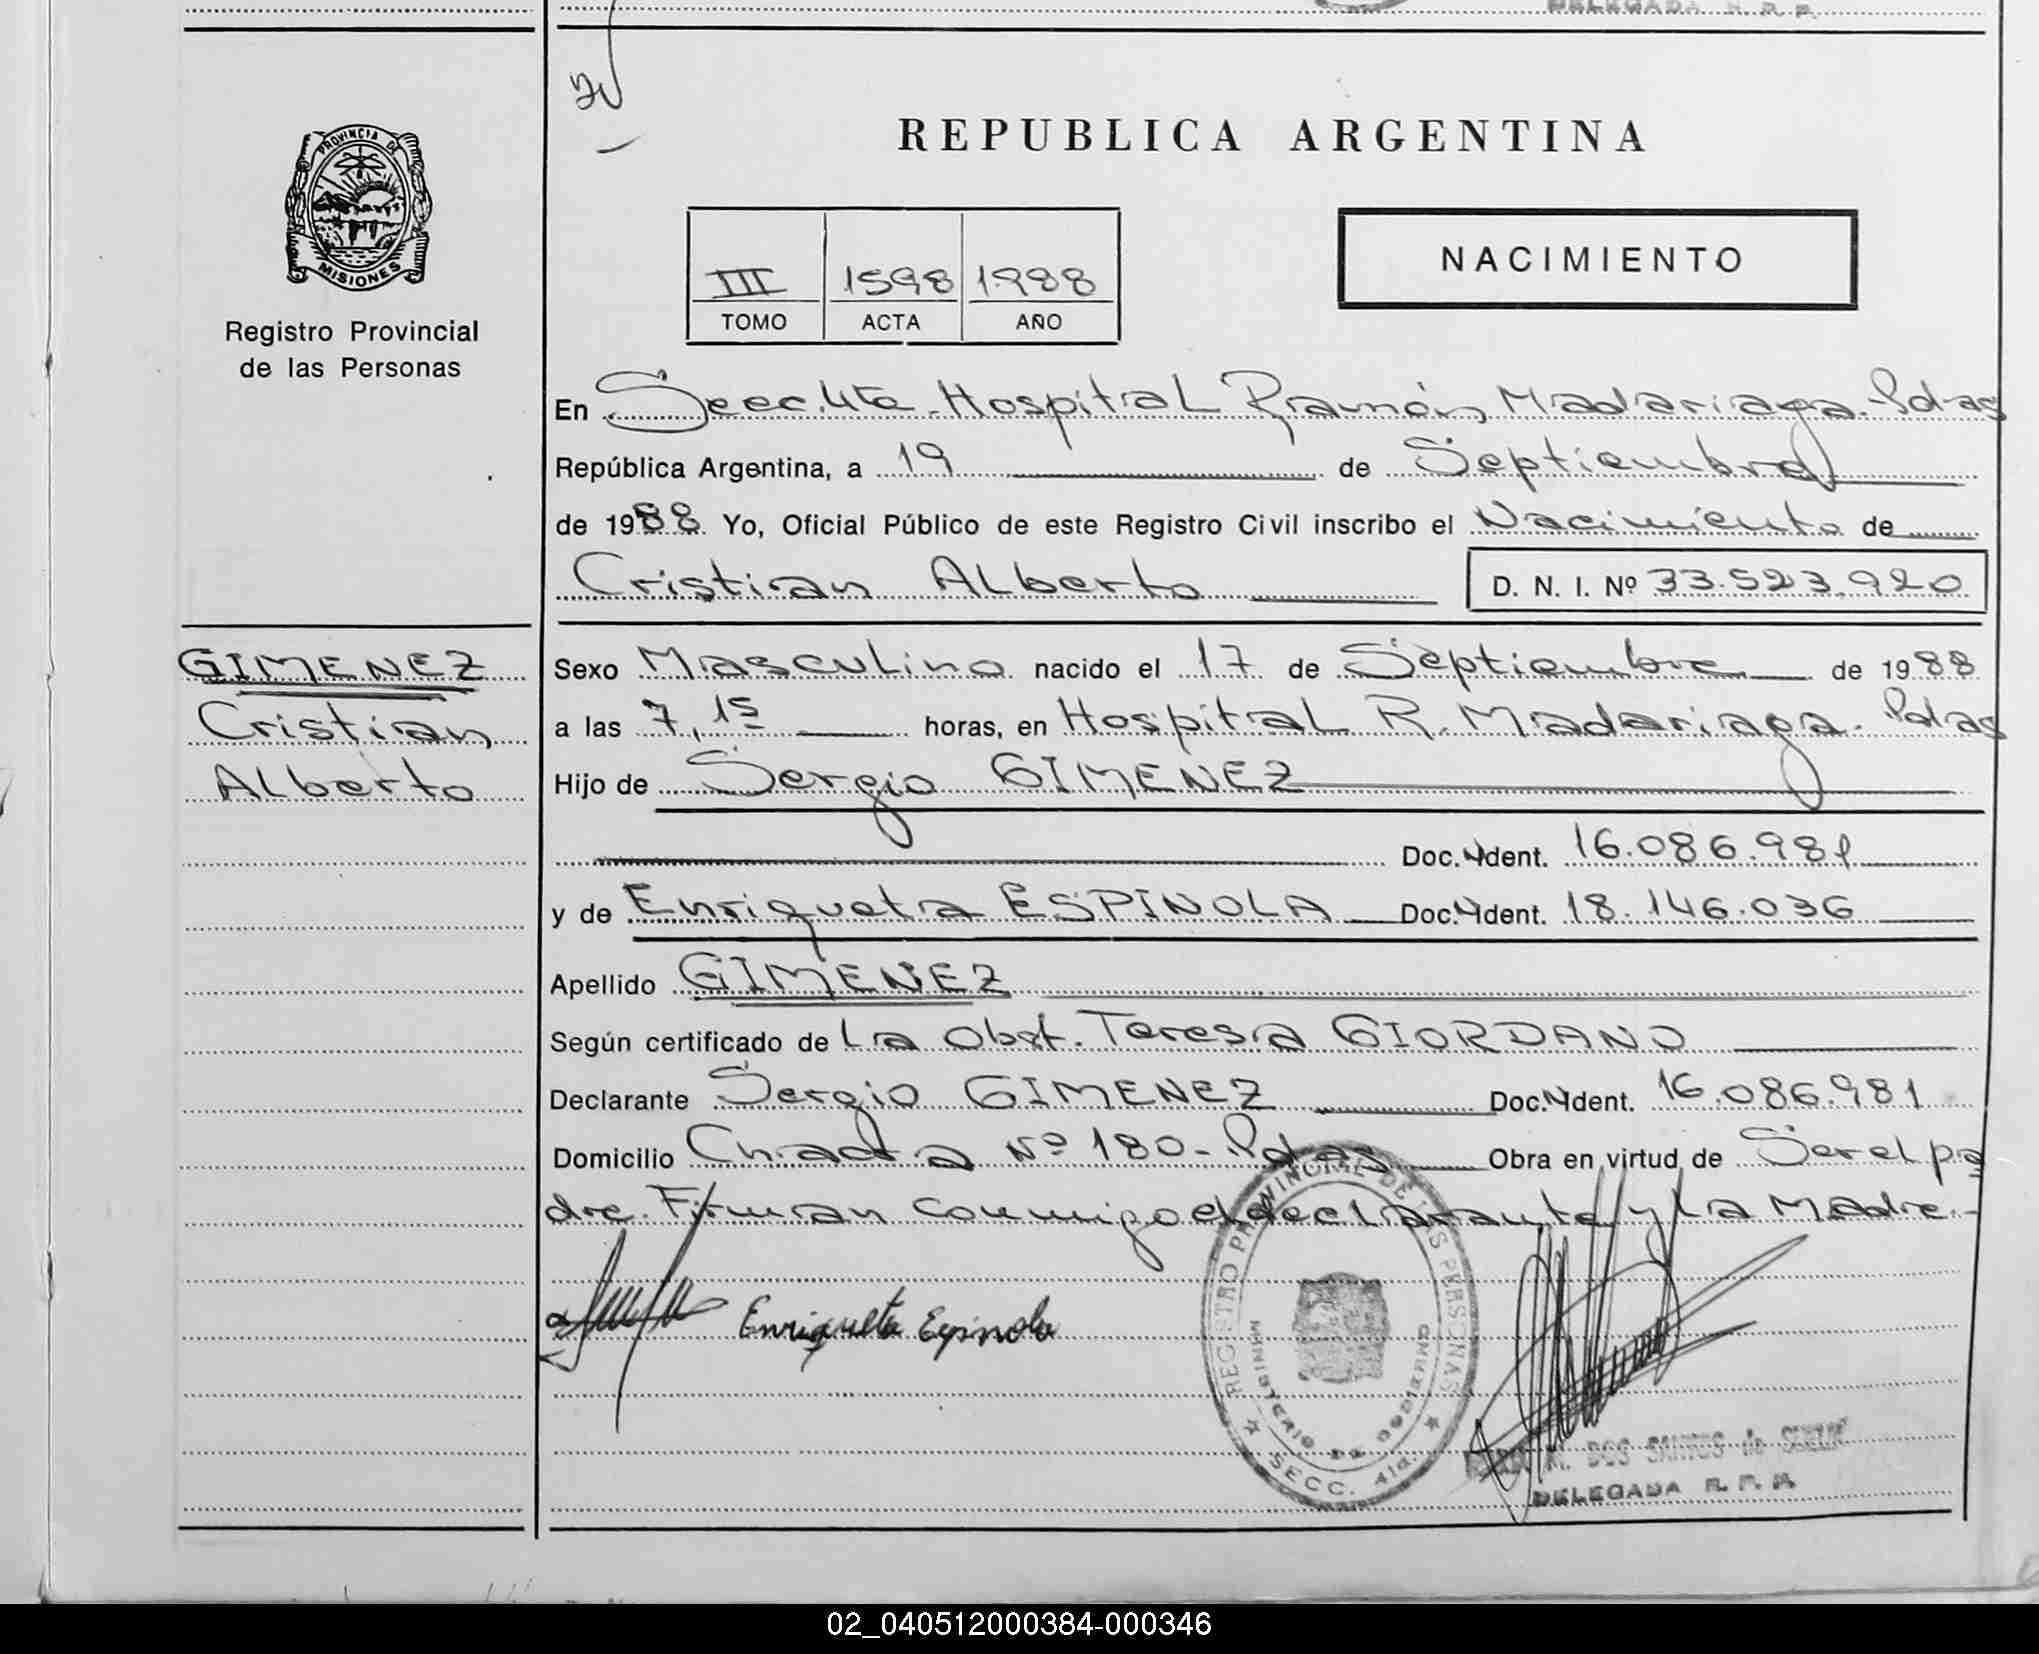 DELEGADA R. P. P.
REPUBLICA ARGENTINA
PROVINCIA DE
MISIONES
Registro Provincial
de las Personas
NACIMIENTO
III 1598 1988
TOMO ACTA AÑO
En Secc. 4ta. Hospital Ramón Madariaga. Pdas
República Argentina, a 19 de Septiembre
de 1988 Yo, Oficial Público de este Registro Civil inscribo el Nacimiento de
Cristian Alberto D. N. I. Nº 33.523.920
GIMENEZ
Cristian
Alberto
Sexo Masculino nacido el 17 de Septiembre de 1988
a las 7,15 horas, en Hospital R. Madariaga. Pdas
Hijo de Sergio GIMENEZ
Doc. Ident. 16.086.981
y de Enriqueta ESPINOLA Doc. Ident. 18.146.036
Apellido GIMENEZ
Según certificado de La Obst. Teresa GIORDANO
Declarante Sergio GIMENEZ Doc. Ident. 16.086.981
Domicilio Chacra Nº 180 - Pdas Obra en virtud de Ser el pa
dre. Firman conmigo el declarante y la Madre.-
Enriqueta Espinola
REGISTRO PROVINCIAL DE LAS PERSONAS
MINISTERIO DE GOBIERNO
SECC. 4ta.
M. DOS SANTOS de
DELEGADA R. P. P.
02_040512000384-000346